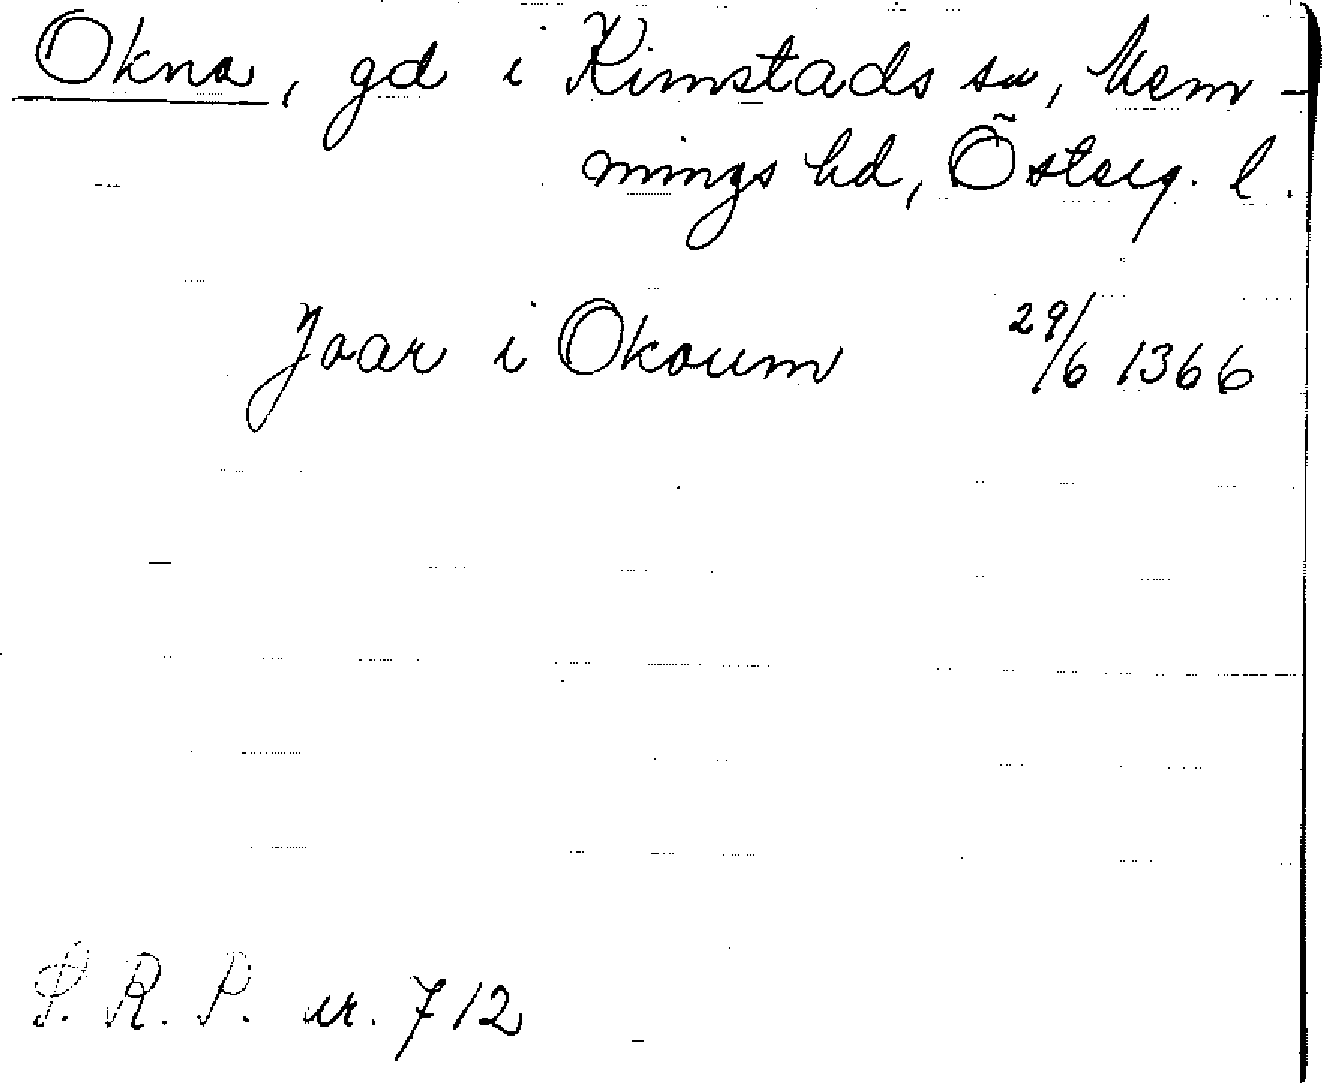 Okna, gd i Kimstads sn, Mem-
mings hd, Österg. l.
Joar i Okoum 29/6 1366
S. R. P. nr. 712